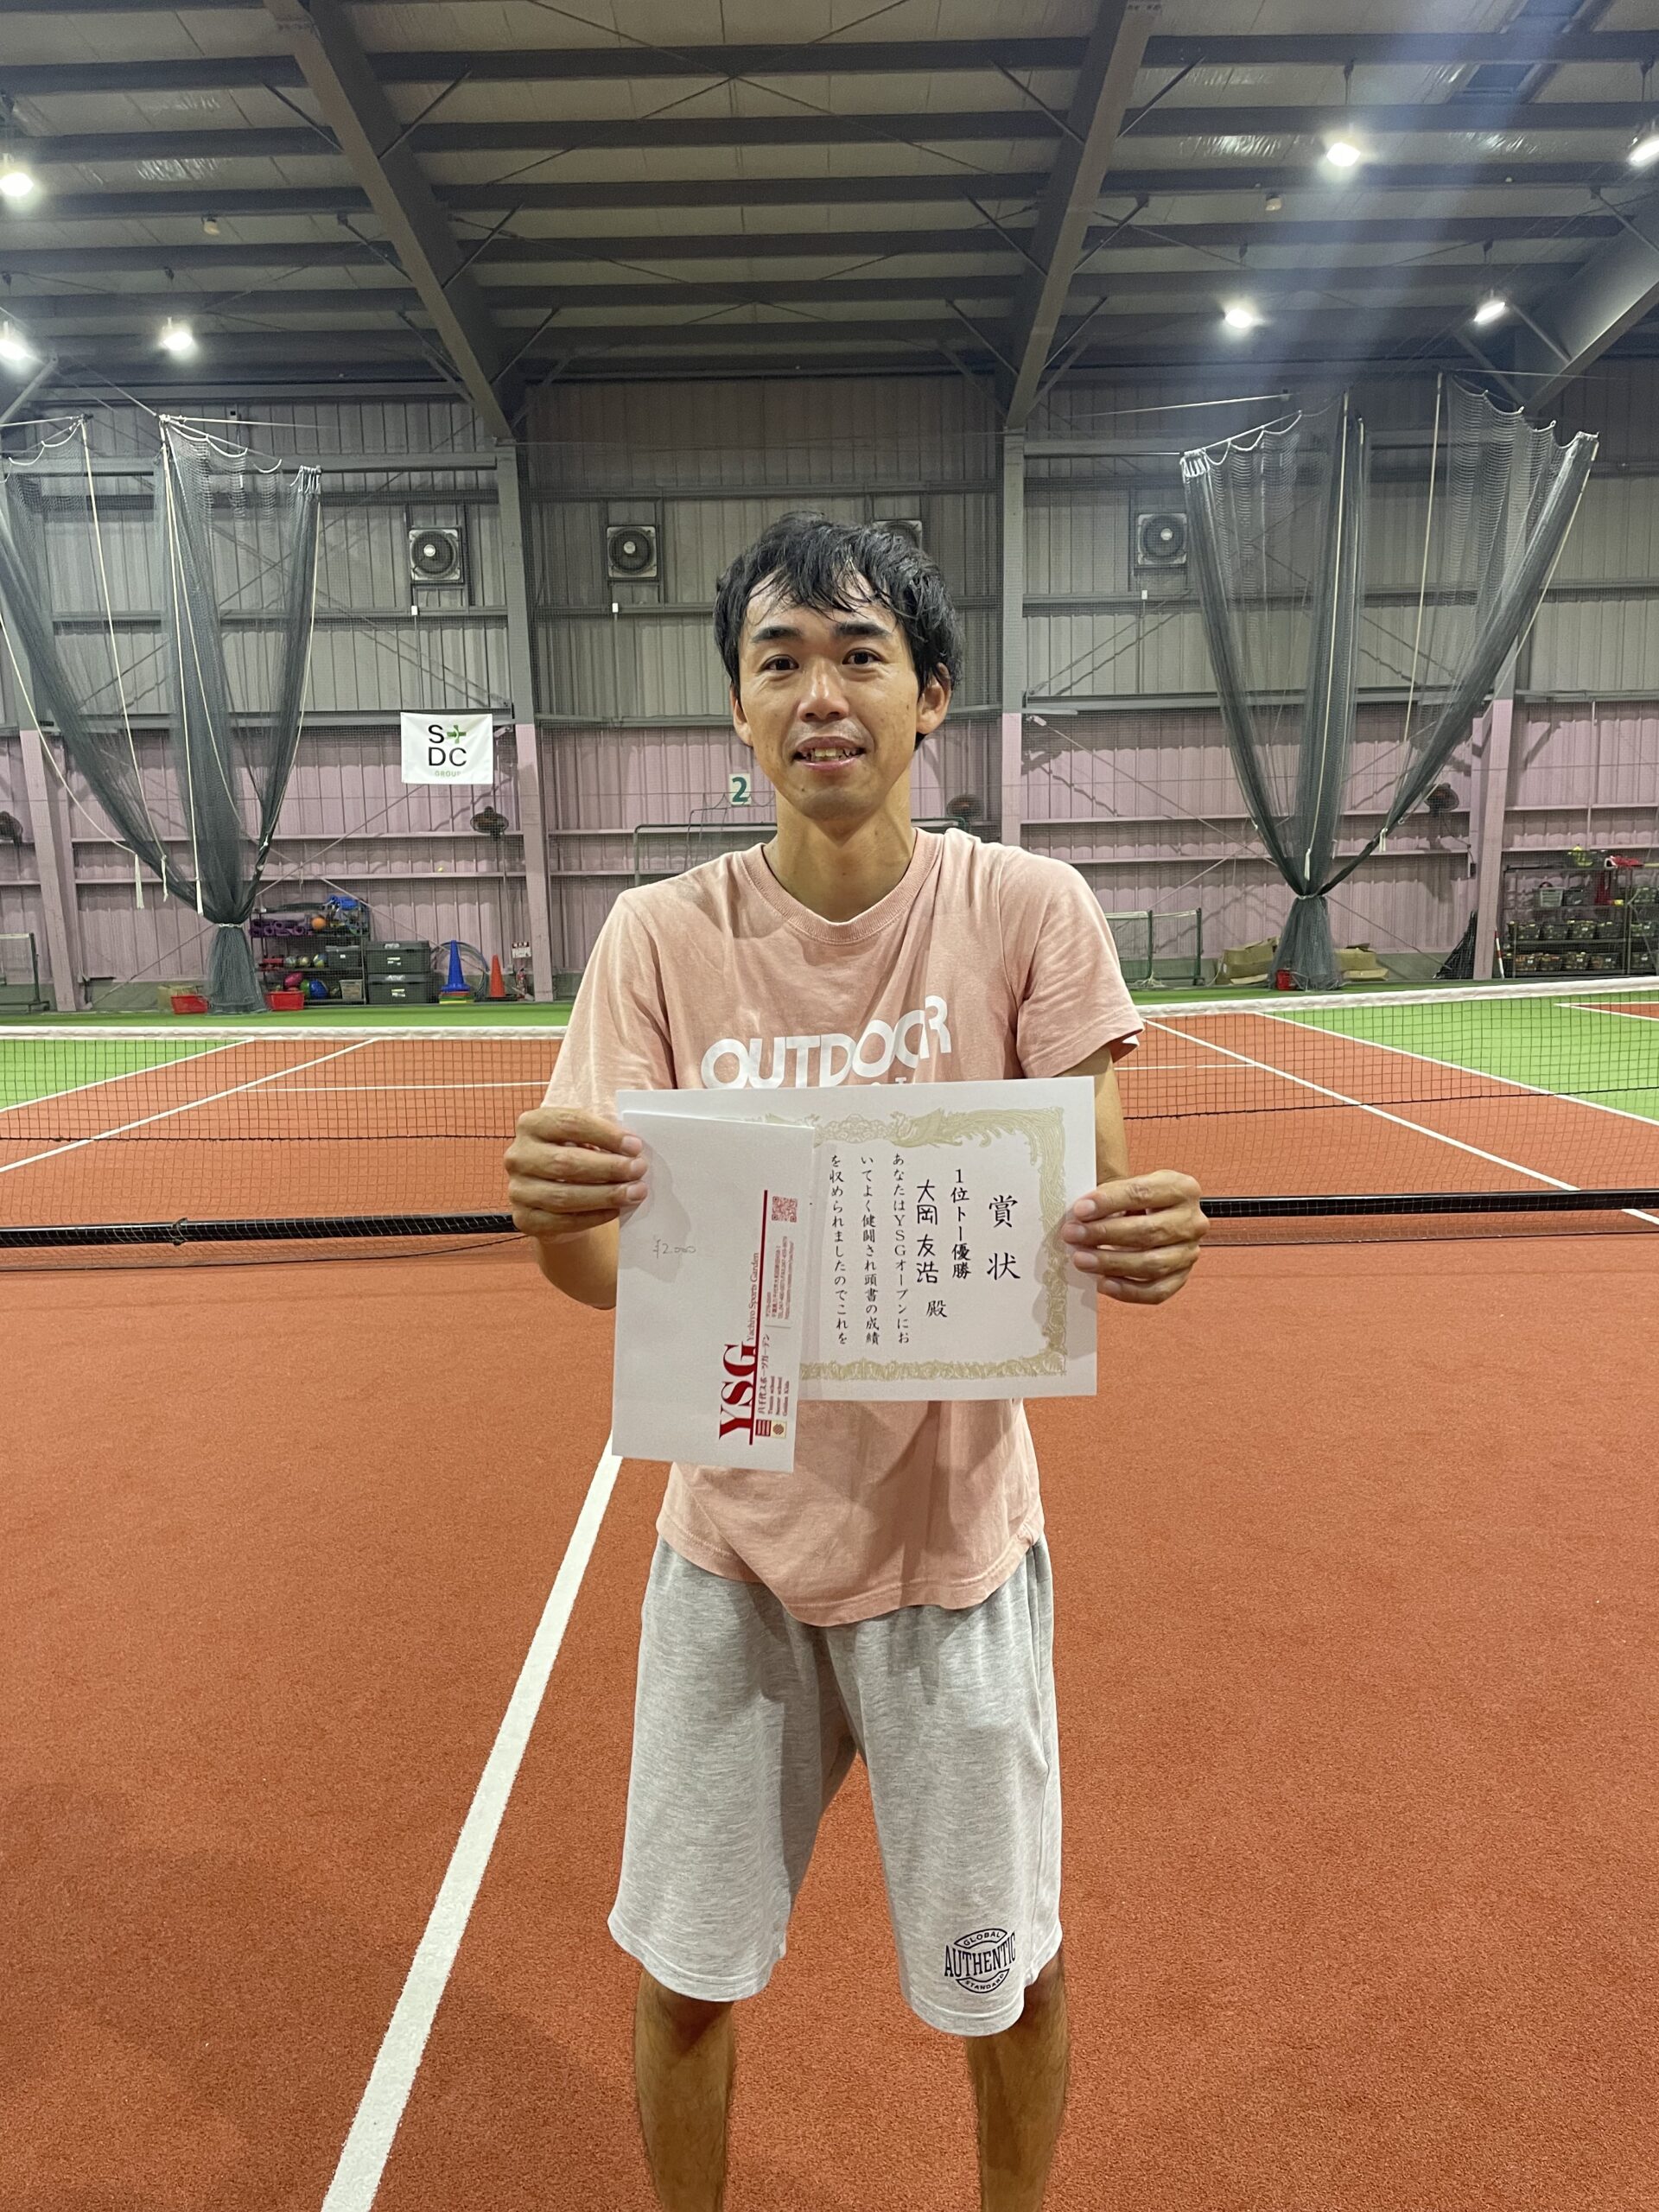 S DC
GROUP
2
OUTDOOR
賞状
1位トー優勝
大岡友浩 殿
あなたはYSGオープンにお
いてよく健闘され頭書の成績
を収められましたのでこれを
¥2,000
YSG
Yachiyo Sports Garden
八千代スポーツガーデン
Tennis school
Soccer school
Garden Kids
GLOBAL
AUTHENTIC
STANDARD